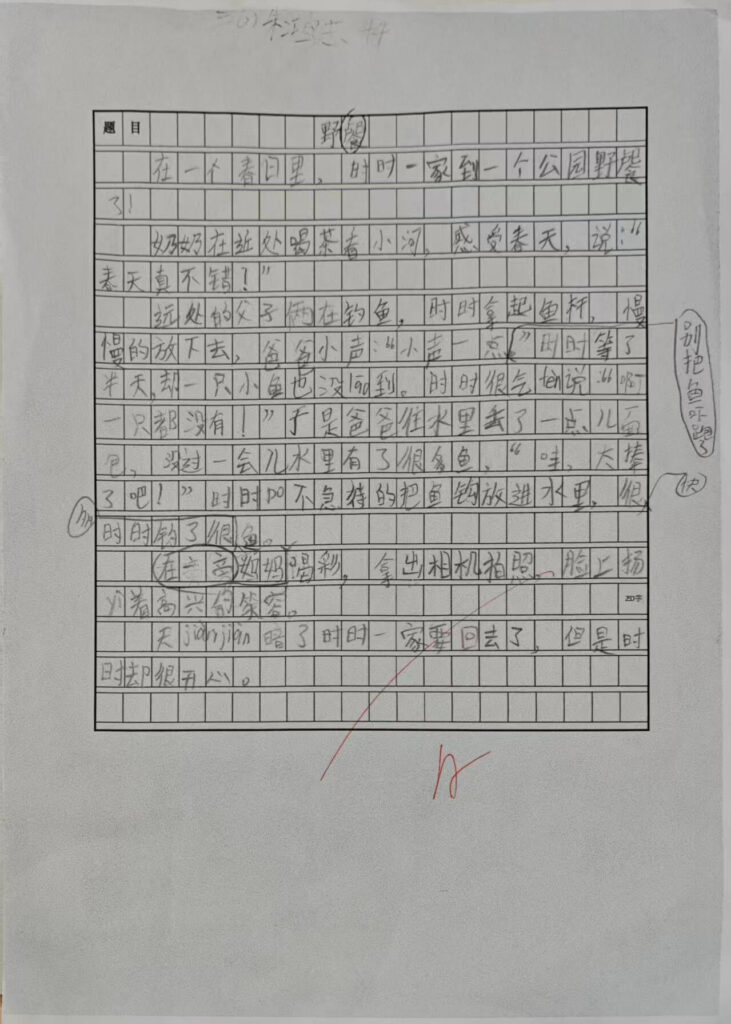 题目
野餐
在一个春日里，时时一家到一个公园野餐
了！
奶奶在近处喝茶着小河，感受春天，说：“
春天真不错！”
远处的父子俩在钓鱼，时时拿起鱼杆，慢
慢的放下去，爸爸小声：“小声一点”时时等了
别把鱼吓跑了
半天，却一只小鱼也没diào到。时时很气 说：“啊？
一只都没有！”于是爸爸往水里丢了一点儿面
包，没过一会儿水里有了很多鱼，“哇，太棒
了吧！”时时迫不急待的把鱼钩放进水里，很
快
时时钓了很鱼。
多
在 妈妈喝彩，拿出相机拍照、脸上扬
yì着高兴的笑容。
20字
天jiànjiàn暗了时时一家要回去了，但是时
时却很开心。